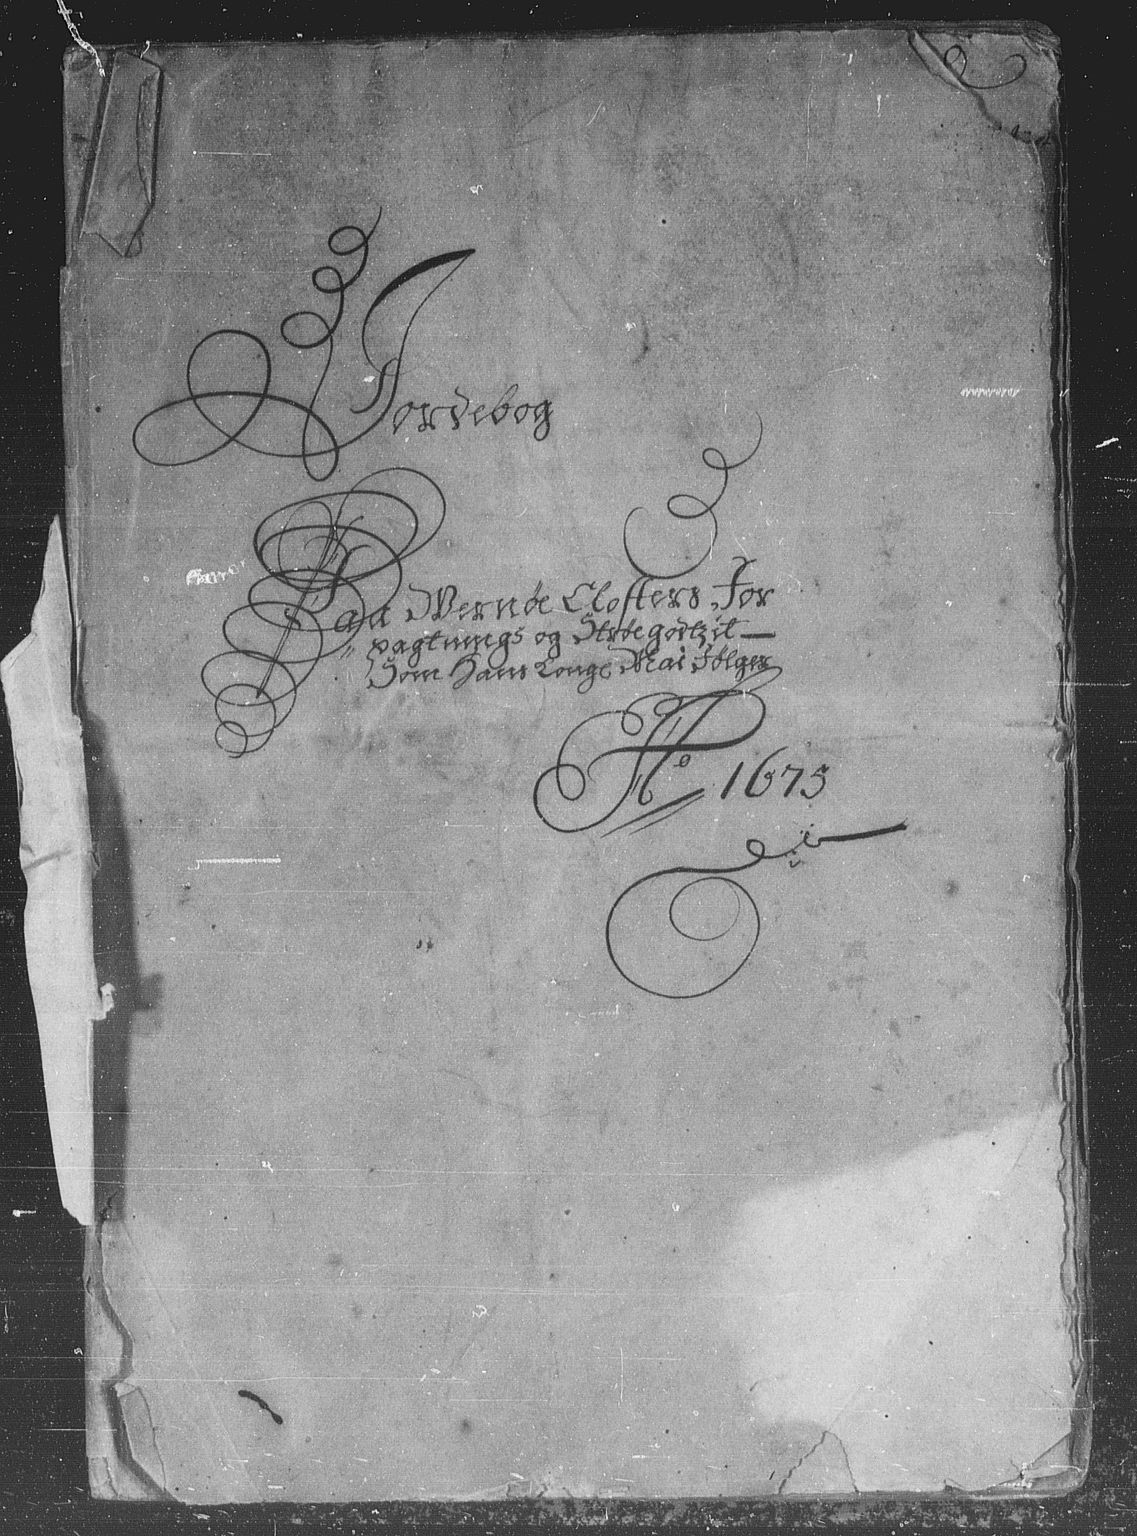 Jordebog
Paa Wernöe Closters For
pagtnings og Ströegodtz it
Som Hans Konge Mai Fölger
Ao 1675